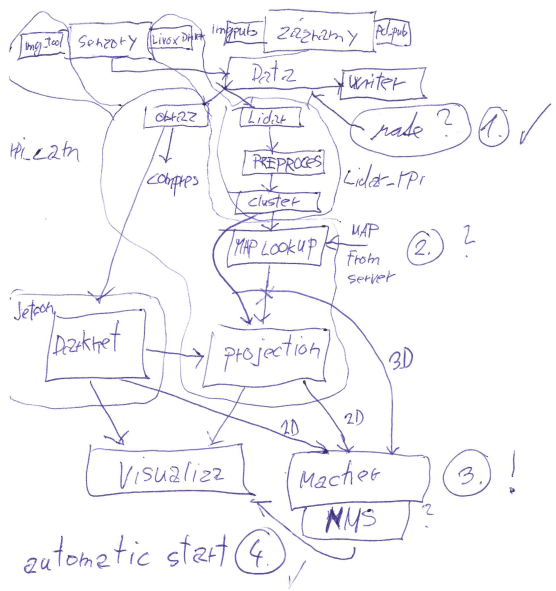 img_tool
Senzory
Livox Driver
Imgpub
záznamy
Pcl_pub
Data
writer
obraz
Lidar
node ?
1.
compres
PREPROCES
Lidar_rpi
cluster
MAP LOOKUP
MAP
From
server
2.
?
Jetson
Darknet
projection
3D
2D
2D
Visualizz
Macher
3.
!
NMS
?
automatic start
4.